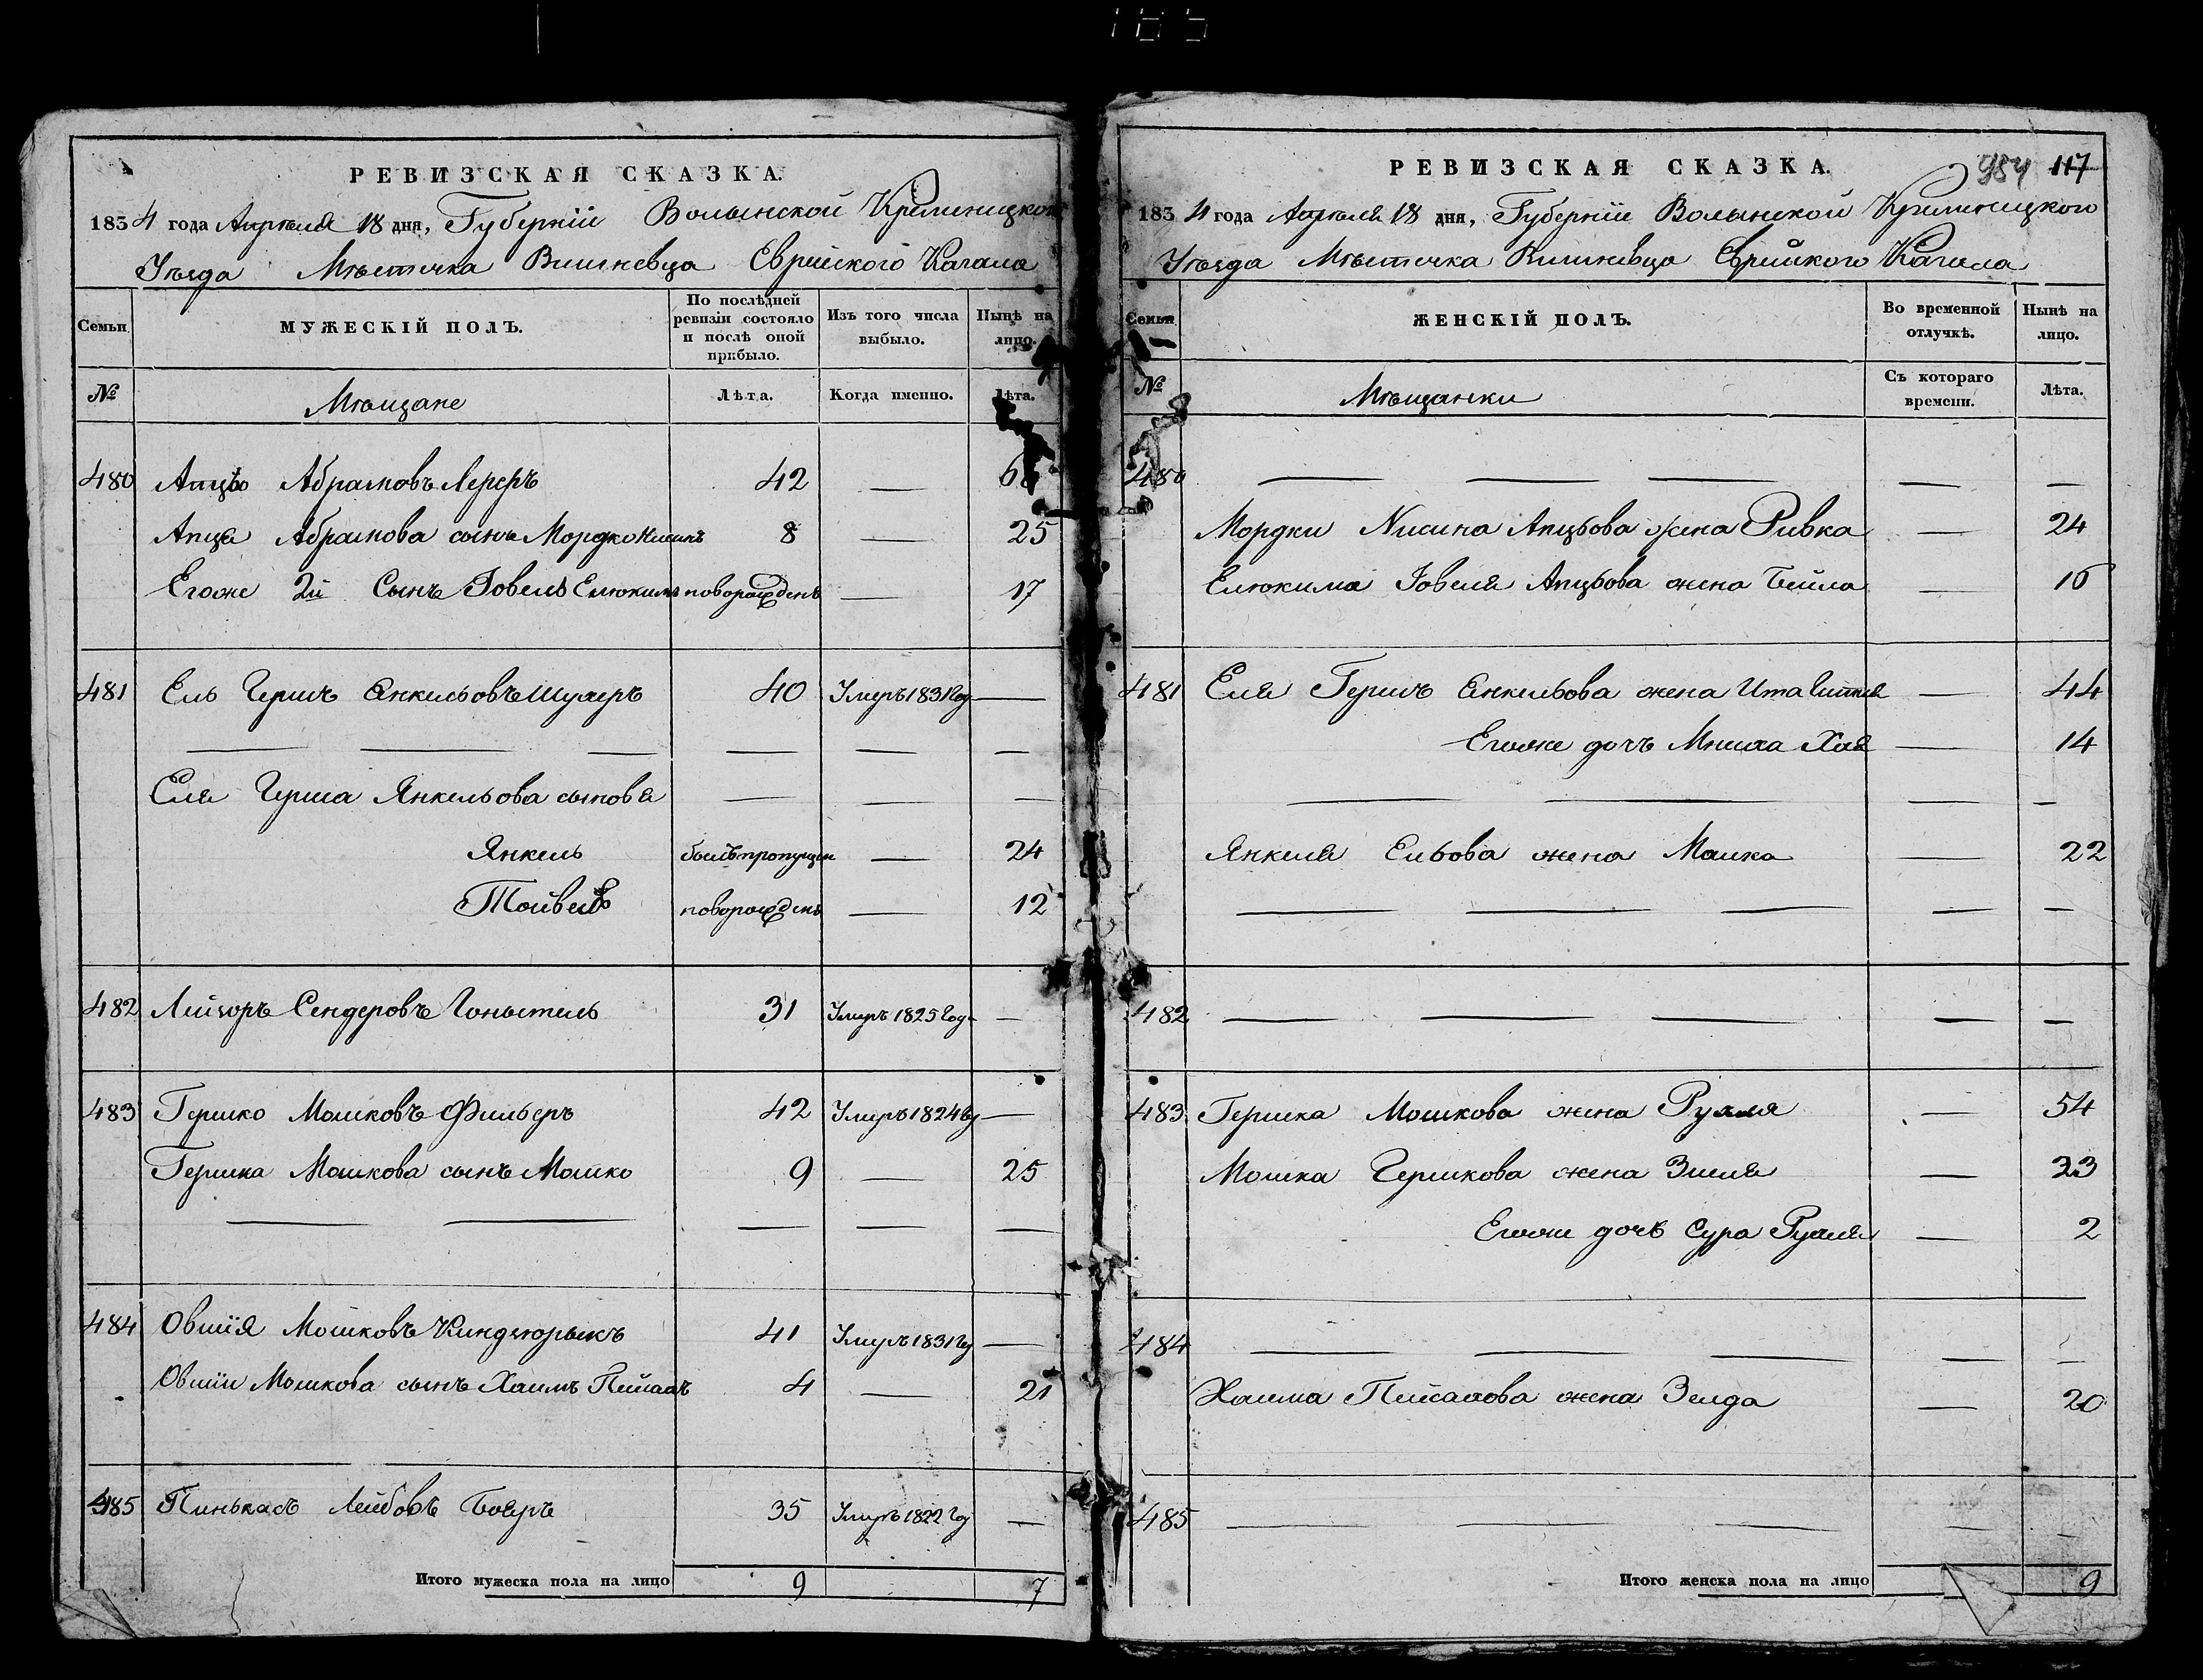 РЕВИЗСКАЯ СКАЗКА.
1834 года Апреля 18 дня, Губерніи Волынской Кременецкого
Уѣзда Мѣстечка Вишневца Еврейского Кагала
Семьи
МУЖЕСКІЙ ПОЛЪ.
По послѣдней ревизіи состояло и послѣ оной прибыло.
Изъ того числа выбыло.
Нынѣ на лицо.
№
Мѣщане
Лѣта.
Когда именно.
Лѣта.
480 Апцьо Абрамовъ Лереръ 42 —
Апця Абрамова сынъ Мордко Нисинъ 8 — 25
Егоже 2й Сынъ Іовель Елюкимъ новорожденъ — 17
481 Ель Гершъ Янкельовъ Шухеръ 40 Умеръ 1831 Год —
Еля Герша Янкельова сыновя — — —
Янкель былъ пропущен — 24
Тойвель новорожденъ — 12
482 Лейзоръ Сендеровъ 31 Умеръ 1825 Год —
483 Гершко Мошковъ Фильеръ 42 Умеръ 1824 Год —
Гершка Мошкова сынъ Мошко 9 — 25
484 Овшія Мошковъ 41 Умеръ 1831 Год —
Овшіи Мошкова сынъ Хаимъ Пейсахъ 4 — 21
485 Пинькасъ Лейбовъ Боеръ 35 Умеръ 1822 Год —
Итого мужеска пола на лицо 9 7
954 117
РЕВИЗСКАЯ СКАЗКА.
1834 года Апреля 18 дня, Губерніи Волынской Кременецкого
Уѣзда Мѣстечка Вишневца Еврейского Кагала
Семьи
ЖЕНСКІЙ ПОЛЪ.
Во временной отлучкѣ.
Нынѣ на лицо.
№
Мѣщанки
Съ котораго времени.
Лѣта.
480 — — — — —
Мордки Нисина Апцьова жена Ривка — 24
Елюкима Іовеля Апцьова жена Бейла — 16
481 Еля Гершъ Янкельова жена Ита — 44
Егоже дочъ Мниха Хая — 14
Янкеля Ельова жена Малка — 22
482 — — — — —
483 Гершка Мошкова жена Рухля — 54
Мошка Гершкова жена Зисля — 23
Егоже дочъ Сура Рухля — 2
484 — — — — —
Хаима Пейсахова жена Зелда — 20
485 — — — — —
Итого женска пола на лицо 9